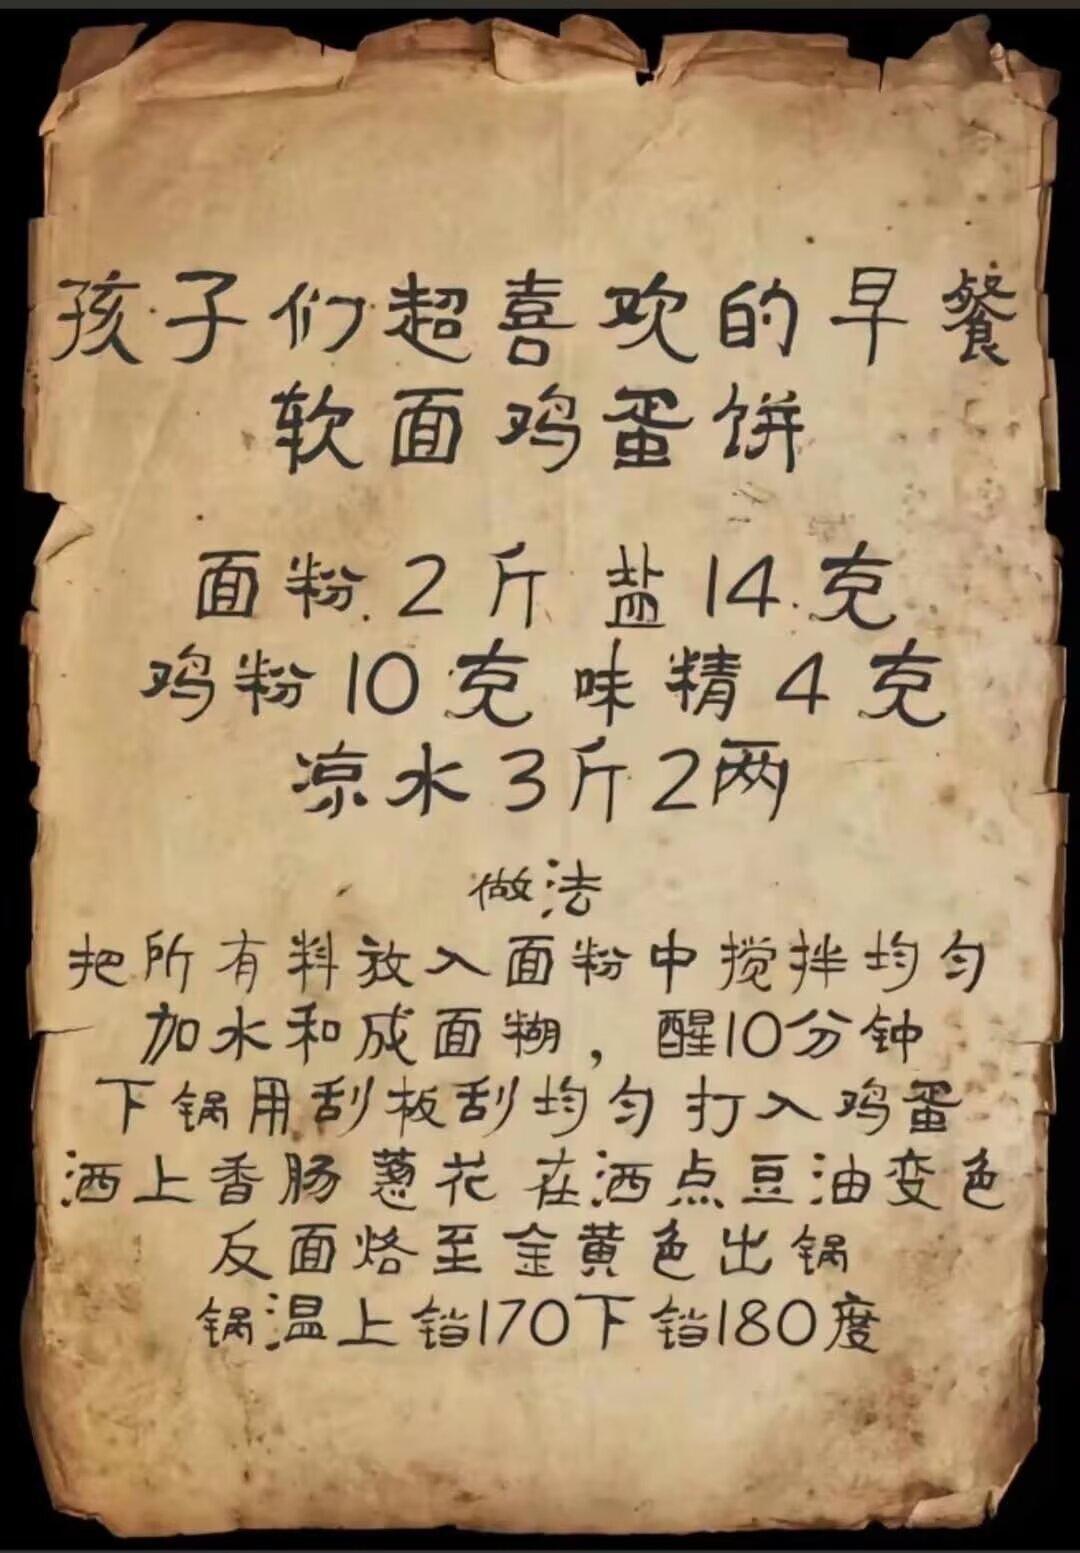 孩子们超喜欢的早餐
软面鸡蛋饼
面粉2斤 盐14克
鸡粉10克 味精4克
凉水3斤2两
做法
把所有料放入面粉中搅拌均匀
加水和成面糊，醒10分钟
下锅用刮板刮均匀 打入鸡蛋
洒上香肠葱花 在洒点豆油变色
反面烙至金黄色出锅
锅温上铛170下铛180度